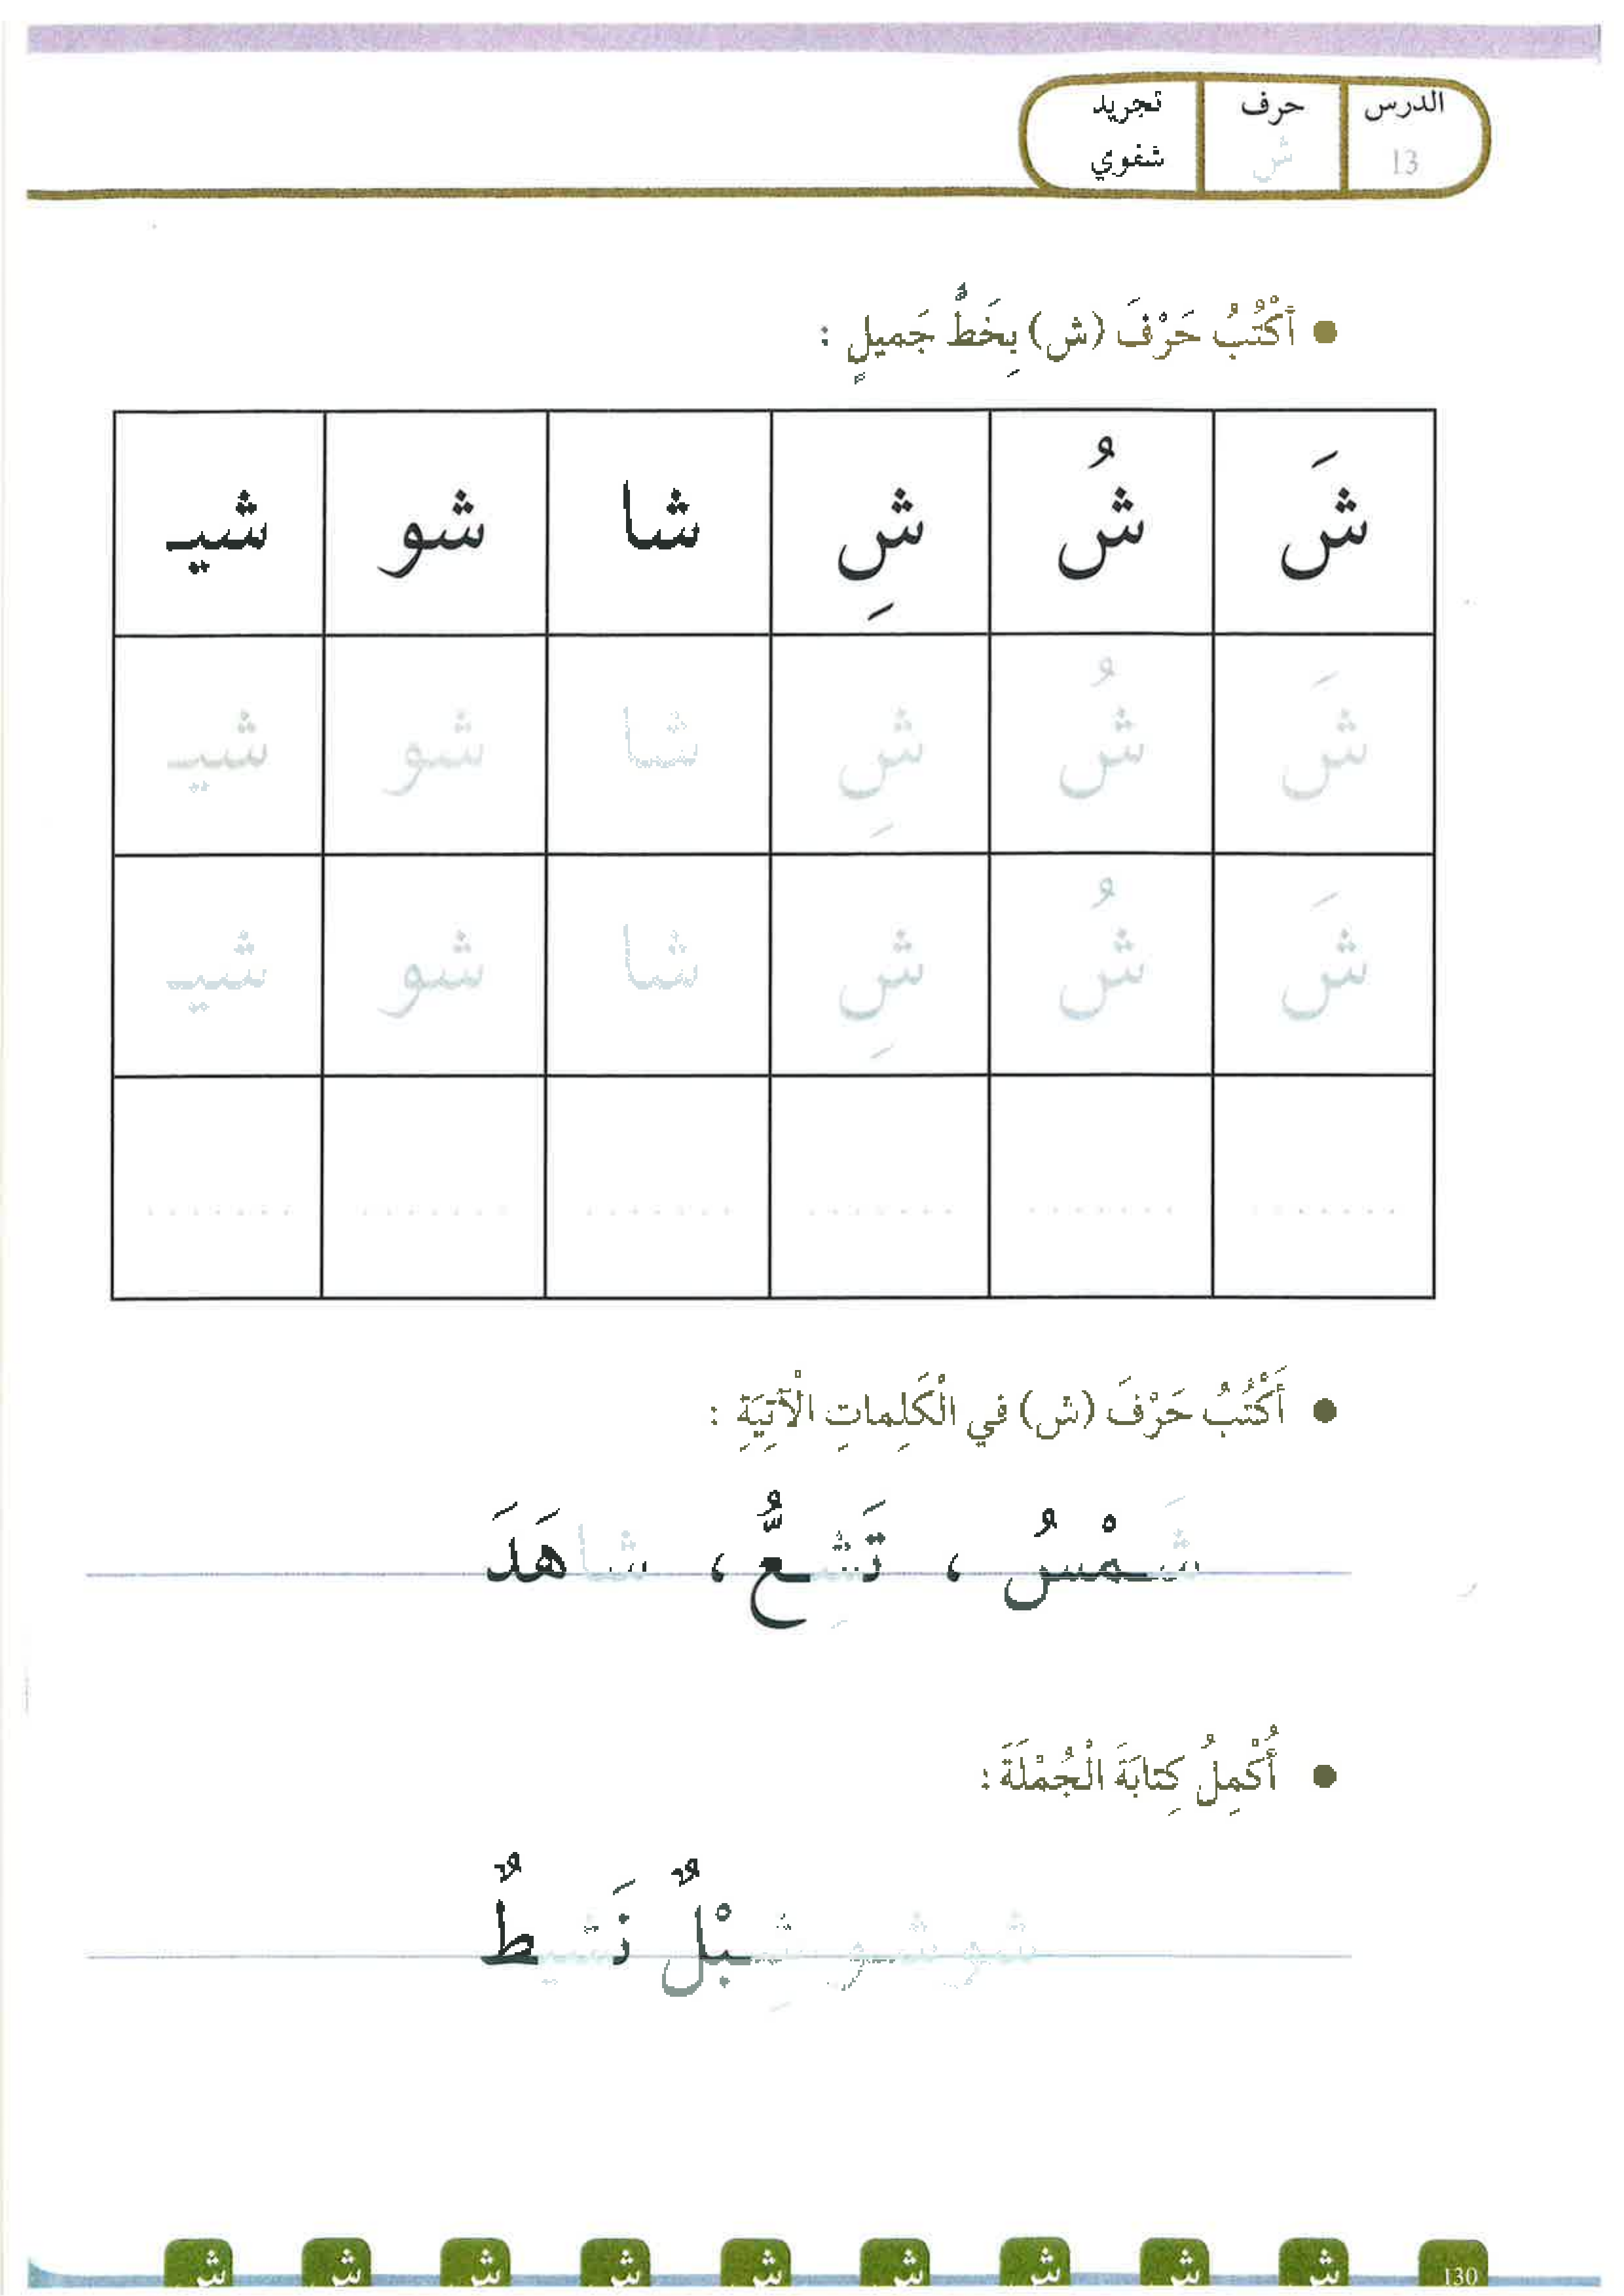 الدرس حرف تجريد
13 ش شفوي
● أَكْتُبُ حَرْفَ (ش) بِخَطٍّ جَميلٍ :
شَ شُ شِ شا شو شيـ
شَ شُ شِ شا شو شيـ
شَ شُ شِ شا شو شيـ
....... ....... ....... ....... ....... .......
● أَكْتُبُ حَرْفَ (ش) في الْكَلِماتِ الْآتِيَةِ :
شَمْسُ ، تَشِعُّ ، شاهَدَ
● أُكْمِلُ كِتابَةَ الْجُمْلَةَ :
شوشو شِبْلٌ نَشيطٌ
130 ش ش ش ش ش ش ش ش ش